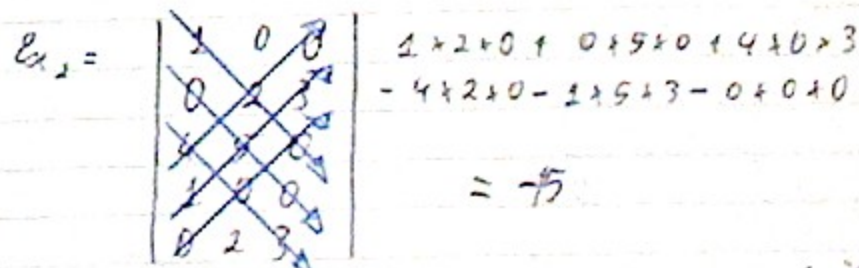 Ex₂ =
1 0 0
0 2 3
4 5 0
1 0 0
0 2 3
1×2×0 + 0×5×0 + 4×0×3
- 4×2×0 - 1×5×3 - 0×0×0
= -15